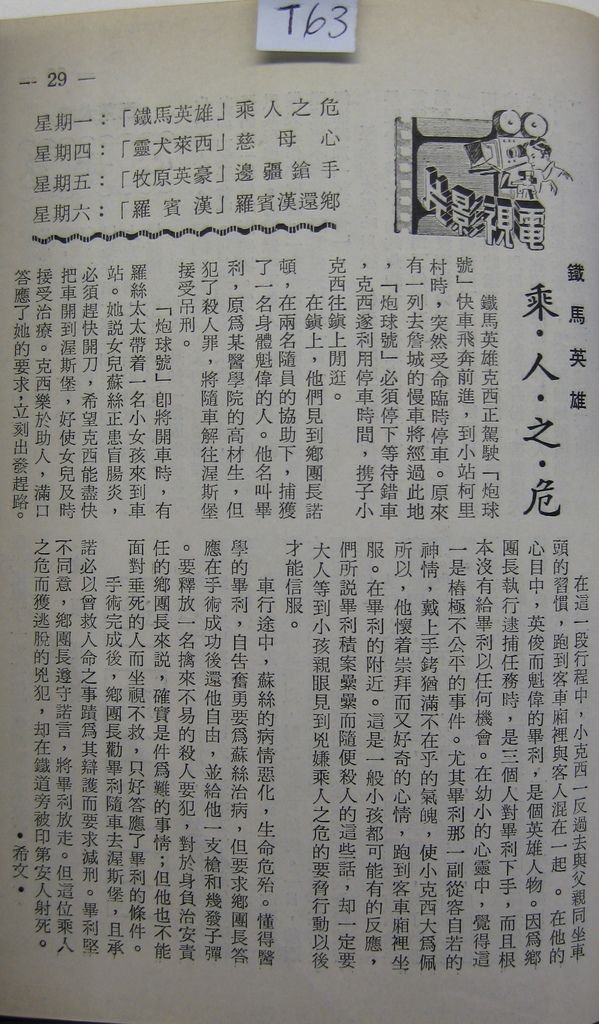 T63
— 29 —
星期一：「鐵馬英雄」乘人之危
星期四：「靈犬萊西」慈母心
星期五：「牧原英豪」邊疆鎗手
星期六：「羅賓漢」羅賓漢還鄉
電視影片
鐵馬英雄
乘·人·之·危
鐵馬英雄克西正駕駛「炮球
號」快車飛奔前進，到小站柯里
村時，突然受命臨時停車。原來
有一列去詹城的慢車將經過此地
，「炮球號」必須停下等待錯車
，克西遂利用停車時間，携子小
克西往鎮上閒逛。
在鎮上，他們見到鄉團長諾
頓，在兩名隨員的協助下，捕獲
了一名身體魁偉的人。他名叫畢
利，原爲某醫學院的高材生，但
犯了殺人罪，將隨車解往渥斯堡
接受吊刑。
「炮球號」卽將開車時，有
羅絲太太帶着一名小女孩來到車
站。她說女兒蘇絲正患盲腸炎，
必須趕快開刀，希望克西能盡快
把車開到渥斯堡，好使女兒及時
接受治療。克西樂於助人，滿口
答應了她的要求，立刻出發趕路。
在這一段行程中，小克西一反過去與父親同坐車
頭的習慣，跑到客車廂裡與客人混在一起。在他的
心目中，英俊而魁偉的畢利，是個英雄人物。因爲鄉
團長執行逮捕任務時，是三個人對畢利下手，而且根
本沒有給畢利以任何機會。在幼小的心靈中，覺得這
一是樁極不公平的事件。尤其畢利那一副從容自若的
神情，戴上手銬猶滿不在乎的氣魄，使小克西大爲佩
所以，他懷着崇拜而又好奇的心情，跑到客車廂裡坐
服。在畢利的附近。這是一般小孩都可能有的反應，
們所說畢利積案纍纍而隨便殺人的這些話，却一定要
大人等到小孩親眼見到兇嫌乘人之危的要脅行動以後
才能信服。
車行途中，蘇絲的病情惡化，生命危殆。懂得醫
學的畢利，自告奮勇要爲蘇絲治病，但要求鄉團長答
應在手術成功後還他自由，並給他一支槍和幾發子彈
。要釋放一名擒來不易的殺人要犯，對於身負治安責
任的鄉團長來說，確實是件爲難的事情；但他也不能
面對垂死的人而坐視不救，只好答應了畢利的條件。
手術完成後，鄉團長勸畢利隨車去渥斯堡，且承
諾必以曾救人命之事蹟爲其辯護而要求減刑。畢利堅
不同意，鄉團長遵守諾言，將畢利放走。但這位乘人
之危而獲逃脫的兇犯，却在鐵道旁被印第安人射死。
•希文•